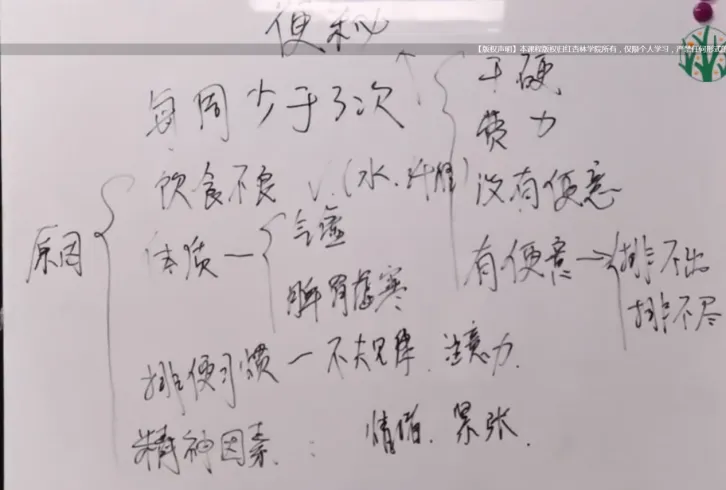 便秘
【版权声明】本课程版权归红杏林学院所有,仅限个人学习,严禁任何形式
每周少于3次
干硬
费力
没有便意
有便意→排不出
排不尽
原因
饮食不良 V.(水.纤维)
体质一 气虚
脾胃虚寒
排便习惯一不规律.注意力.
精神因素: 情绪.紧张.